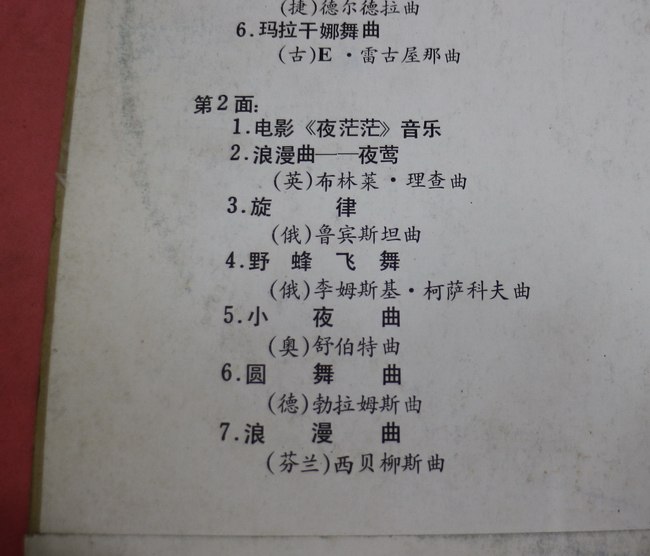 (捷)德尔德拉曲
6.玛拉干娜舞曲
(古)E·雷古屋那曲
第2面:
1.电影《夜茫茫》音乐
2.浪漫曲——夜莺
(英)布林莱·理查曲
3.旋 律
(俄)鲁宾斯坦曲
4.野 蜂 飞 舞
(俄)李姆斯基·柯萨科夫曲
5.小 夜 曲
(奥)舒伯特曲
6.圆 舞 曲
(德)勃拉姆斯曲
7.浪 漫 曲
(芬兰)西贝柳斯曲